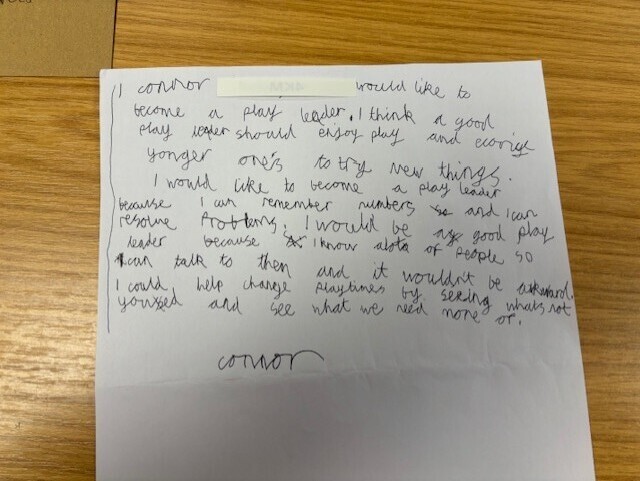 I connor would like to
become a play leader. I think a good
play leader should enjoy play and ecorige
yonger one's to try new things.
I would like to become a play leader
because I can remember numbers and I can
resolve Problems. I would be a good play
leader because I know alot of people so
I can talk to then and it wouldn't be awkward.
I could help change playtimes by seeing whats not
youssed and see what we need more of.
connor